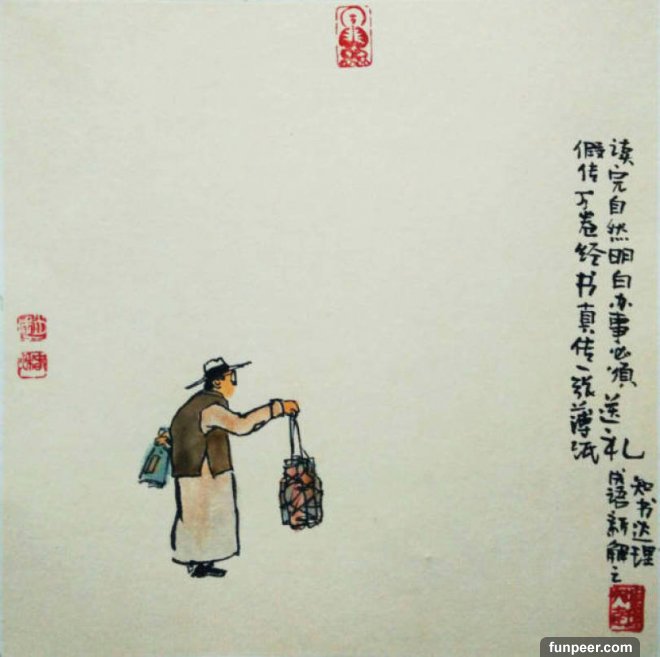 假传万卷经书真传一张薄纸
读完自然明白办事必须送礼
成语新解之
知书达理
funpeer.com